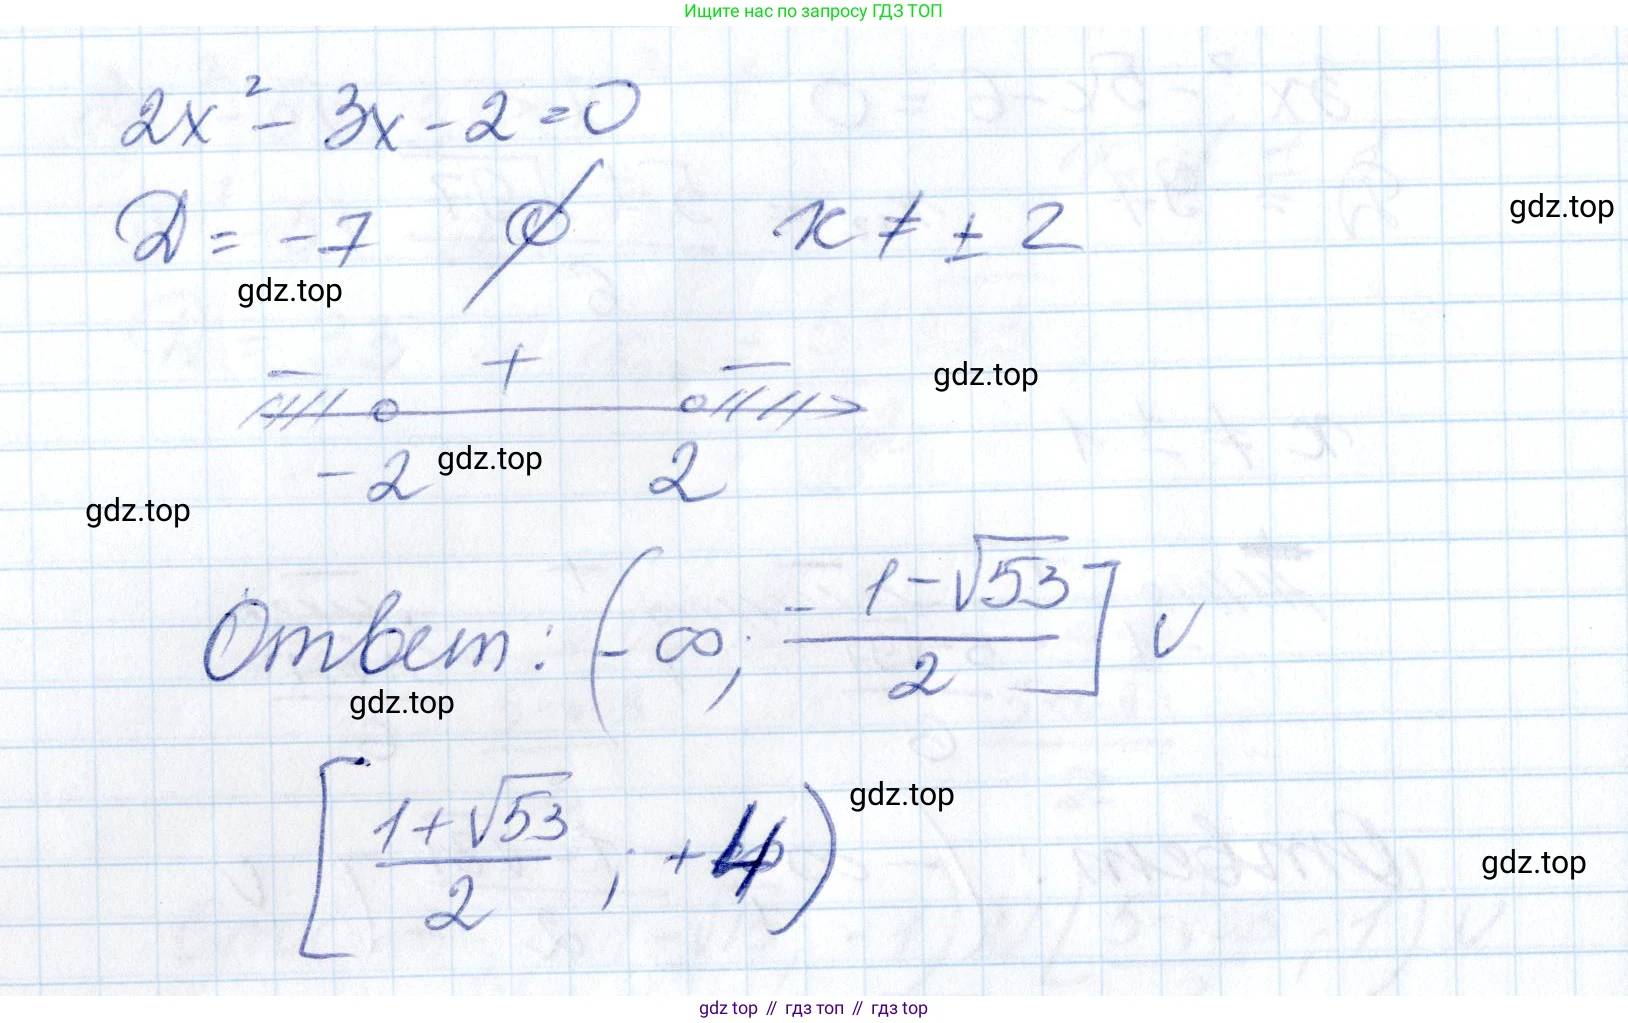 Ищите нас по запросу ГДЗ ТОП
2x² - 3x - 2 = 0
D = -7 ∅ x ≠ ± 2
gdz.top
gdz.top
- + -
gdz.top
-2 2
gdz.top
gdz.top
Ответ: (-∞; - (1-√53)/2] ∪
gdz.top
[(1+√53)/2; +4)
gdz.top
gdz.top
gdz.top // гдз топ // gdz top